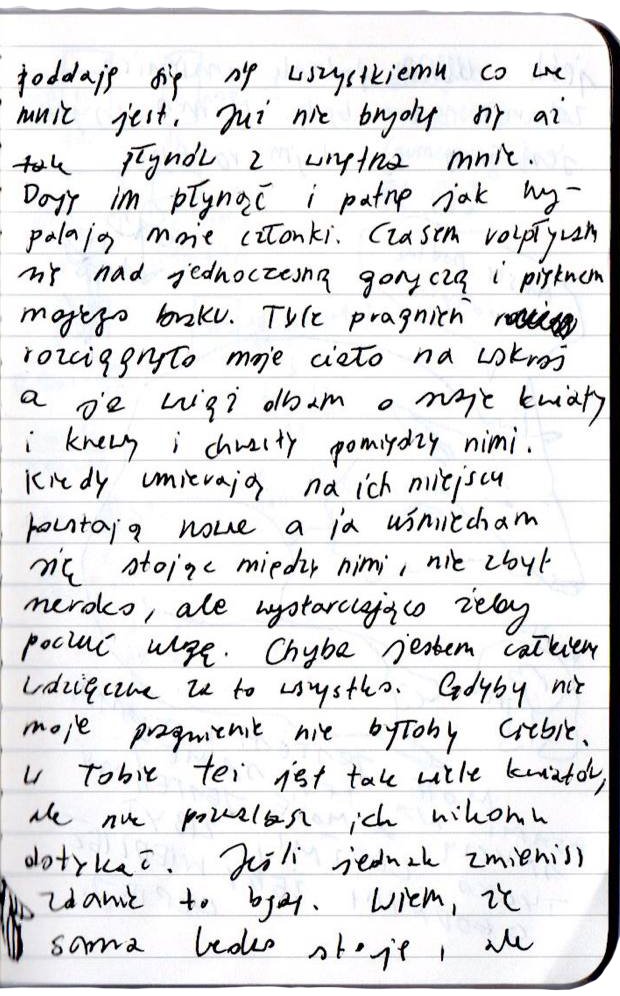 poddaję się się wszystkiemu co we
mnie jest. Już nie brzydzę się aż
tak płynów z wnętrza mnie.
Daję im płynąć i patrzę jak wy-
palają moje członki. Czasem rozpływam
się nad jednoczesną goryczą i pięknem
mojego braku. Tyle pragnień
rozciągnęło moje ciało na wskroś
a ja wciąż dbam o moje kwiaty
i krzewy i chwasty pomiędzy nimi.
Kiedy umierają na ich miejscu
powstają nowe a ja uśmiecham
się stojąc między nimi, nie zbyt
szeroko, ale wystarczająco żeby
poczuć ulgę. Chyba jestem całkiem
wdzięczna za to wszystko. Gdyby nie
moje pragnienie nie byłoby Ciebie.
W Tobie też jest tak wiele kwiatów,
ale nie pozwalasz ich nikomu
dotykać. Jeśli jednak zmienisz
zdanie to będę. Wiem, że
sama ledwo stoję, ale